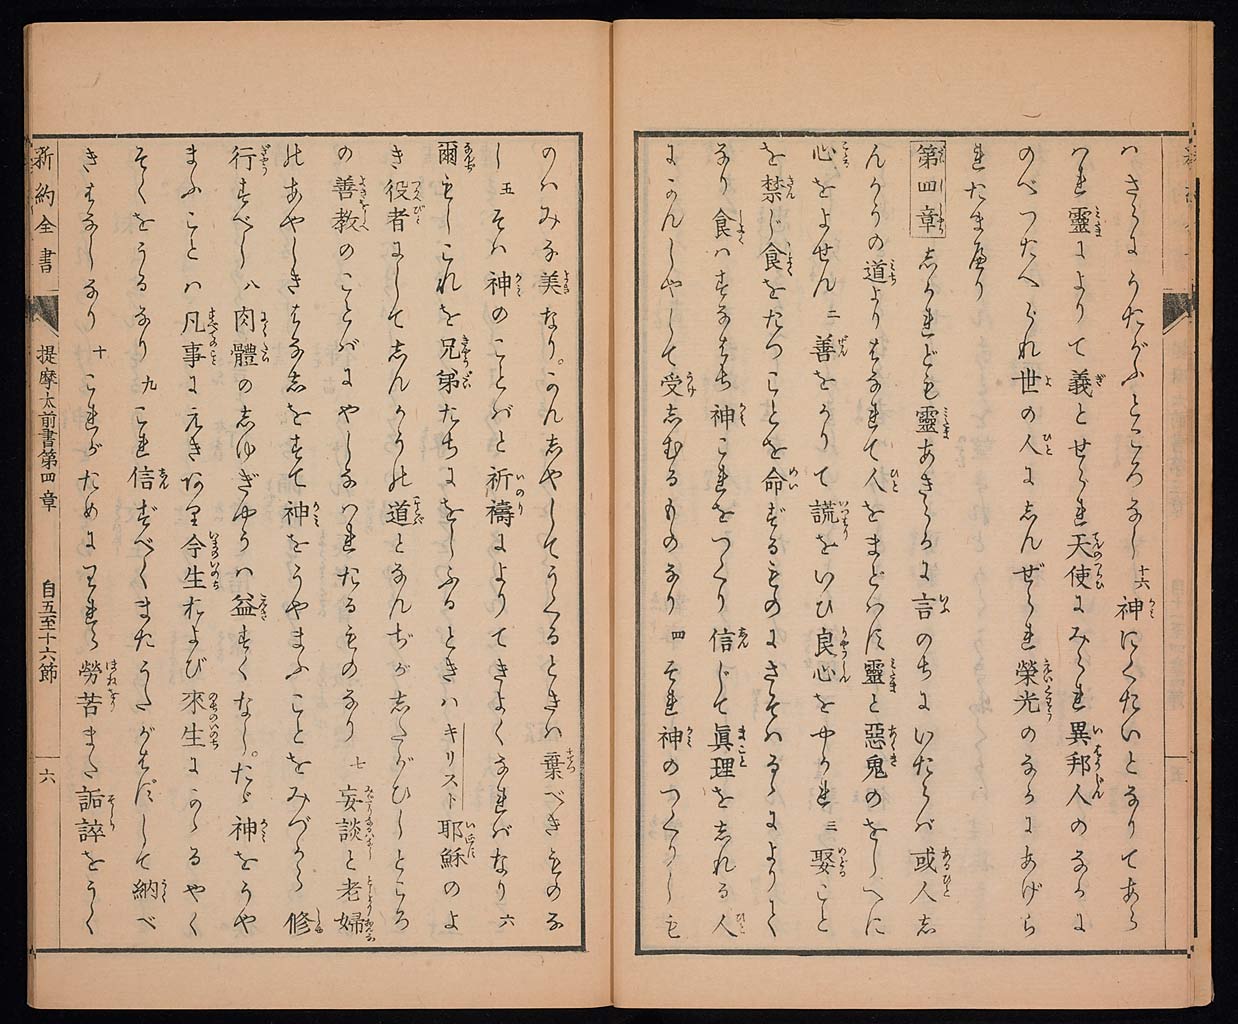 ハさらにうたがふところなし 十六 神にくたいとなりてあら
はれ靈によりて義とせられ天使にみられ異邦人のなかに
のべつたへられ世の人にしんぜられ榮光のなかにあげら
れたまへり
第四章 しかれども靈あきらかに言のちにいたらバ或人し
んかうの道よりはなれて人をまどハす靈と惡鬼のをしへに
心をよせん 二 善をかりて謊をいひ良心をやかれ 三 娶こと
を禁じ食をたつことを命ずるものにさそはるゝによりてなり
食ハすなはち神これをつくり信じて眞理をしれる人
にかんしやして受しむるものなり 四 それ神のつくりしも
のハみな美なり。かんしやしてうくるときハ棄べきものな
し 五 そハ神のことばと祈禱によりてきよくなれバなり 六
爾もしこれを兄弟たちにをしふるときハキリスト耶穌のよ
き役者にしてしんかうの道となんぢがしたがひしところ
の善教のことばにやしなハれたるものなり 七 妄談と老婦
のあやしきはなしをすて神をうやまふことをみづから修
行すべし 八 肉體のしゆぎやうハ益すくなし。たゞ神をうや
まふことハ凡事にえきあり今生および來生にかゝるやく
そくをうるなり 九 これ信ずべくまたうたがはずして納べ
きはなしなり 十 これがためにわれら勞苦また詬誶をうく
新約全書
提摩太前書第四章
自五至十六節
六